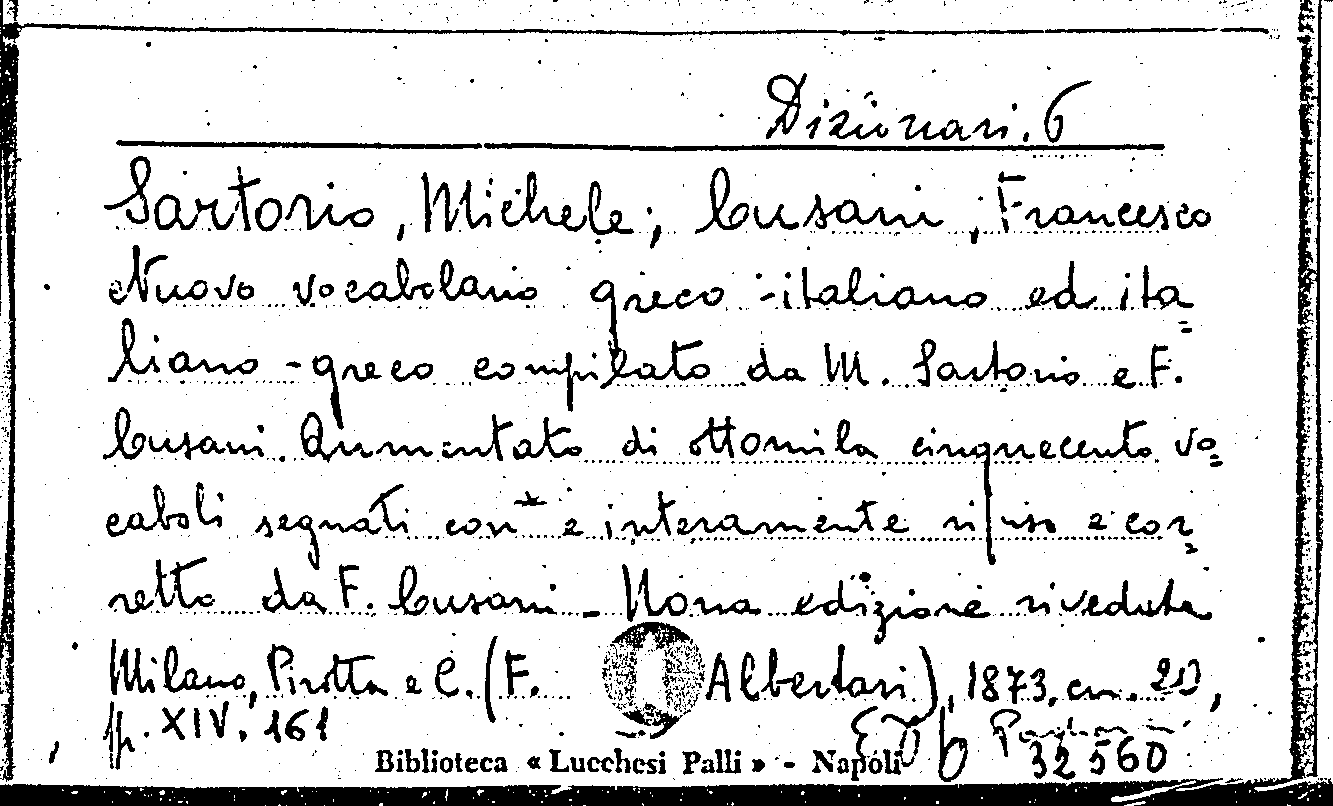 Dizionari. 6
Sartorio, Michele; Cusani, Francesco
Nuovo vocabolario greco-italiano ed ita=
liano-greco compilato da M. Sartorio e F.
Cusani. Aumentato di ottomila cinquecento vo=
caboli segnati con * e interamente rifuso e cor=
retto da F. Cusani - Nona edizione riveduta
Milano, Pirotta e C. (F. Albertari), 1873, cm. 20,
pp. XIV. 161
b 32560
Biblioteca « Lucchesi Palli » - Napoli